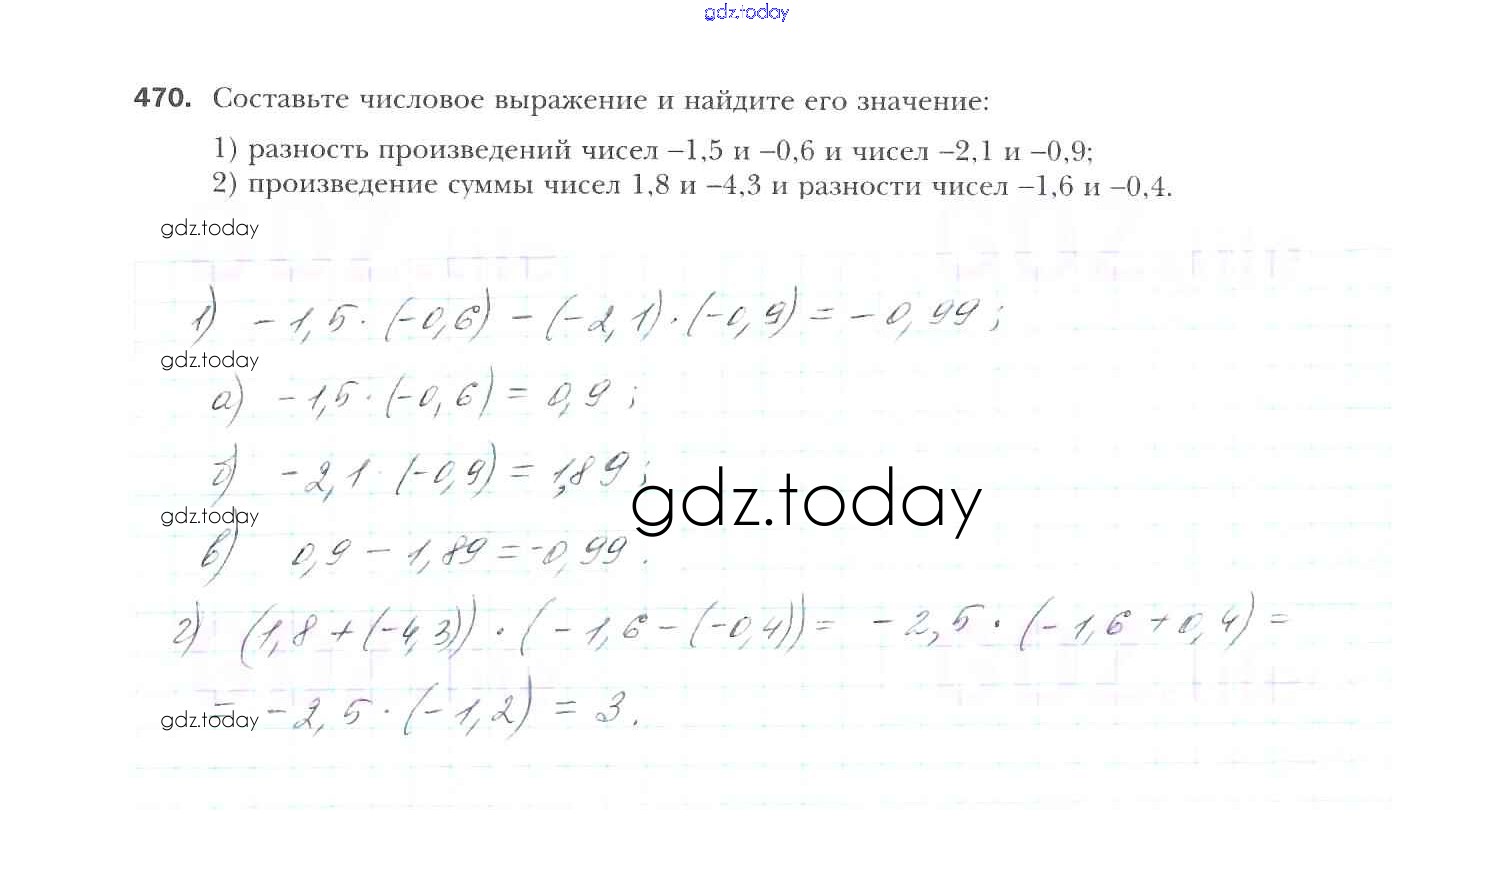 gdz.today
470. Составьте числовое выражение и найдите его значение:
1) разность произведений чисел –1,5 и –0,6 и чисел –2,1 и –0,9;
2) произведение суммы чисел 1,8 и –4,3 и разности чисел –1,6 и –0,4.
gdz.today
1) - 1,5 · (-0,6) - (-2,1) · (-0,9) = - 0,99 ;
gdz.today
а) - 1,5 · (-0,6) = 0,9 ;
б) - 2,1 · (-0,9) = 1,89 ;
gdz.today
gdz.today
в) 0,9 - 1,89 = -0,99 .
г) (1,8 + (-4,3)) · (-1,6 - (-0,4)) = - 2,5 · (-1,6 + 0,4) =
= - 2,5 · (-1,2) = 3 .
gdz.today